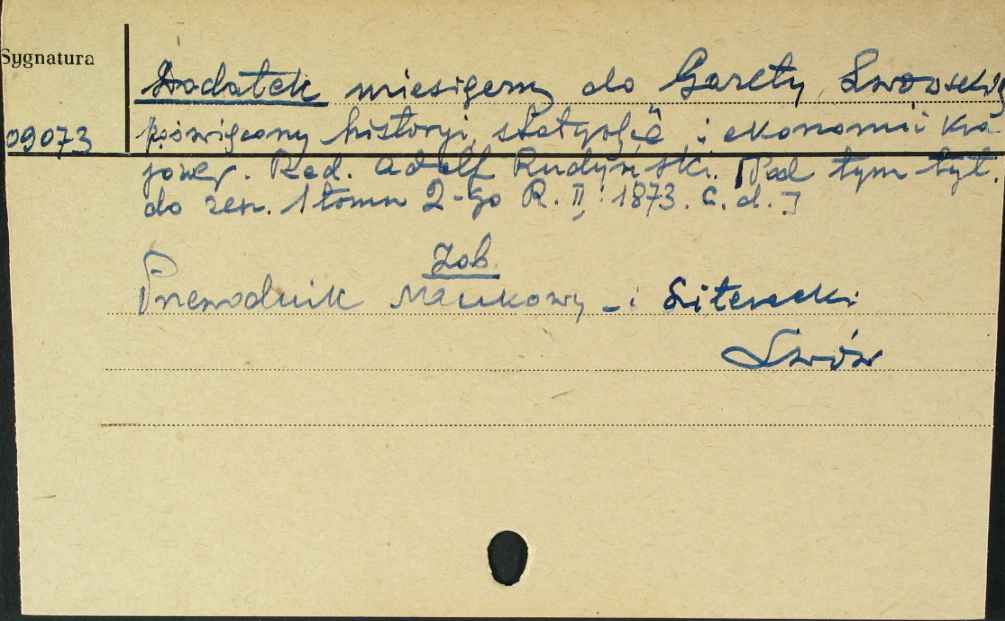 Sygnatura
Dodatek miesięczny do Gazety Lwowskiej
09073 poświęcony historyi, statystyce i ekonomii kra-
jowej. Red. Adolf Rudyński. [Pod tym tyt.
do zesz. 1 tomu 2-go R. II: 1873. C. d.]
Zob.
Przewodnik Naukowy i Literacki
Lwów